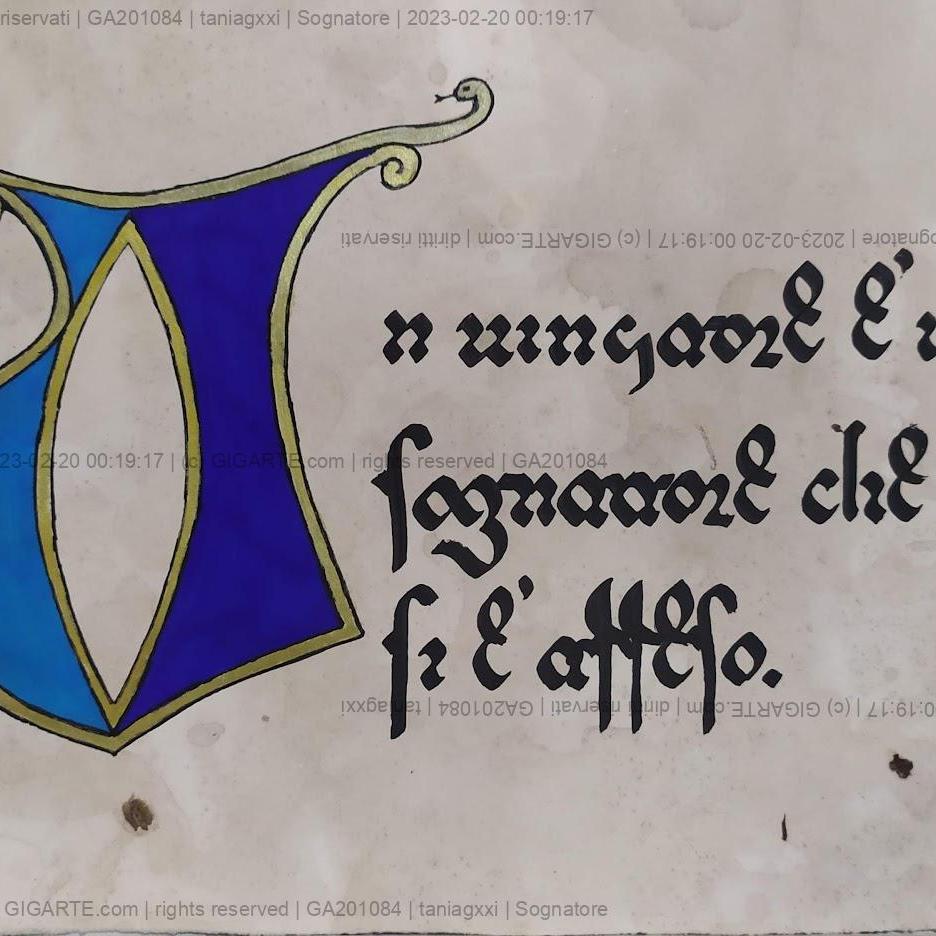 riservati | GA201084 | taniagxxi | Sognatore | 2023-02-20 00:19:17
2023-02-20 00:19:17 | (c) GIGARTE.com | diritti riservati
Un uincitore e'
23-02-20 00:19:17 | (c) GIGARTE.com | rights reserved | GA201084
sognatore che
si e' arreso.
00:19:17 | (c) GIGARTE.com | diritti riservati | GA201084 | taniagxxi
GIGARTE.com | rights reserved | GA201084 | taniagxxi | Sognatore